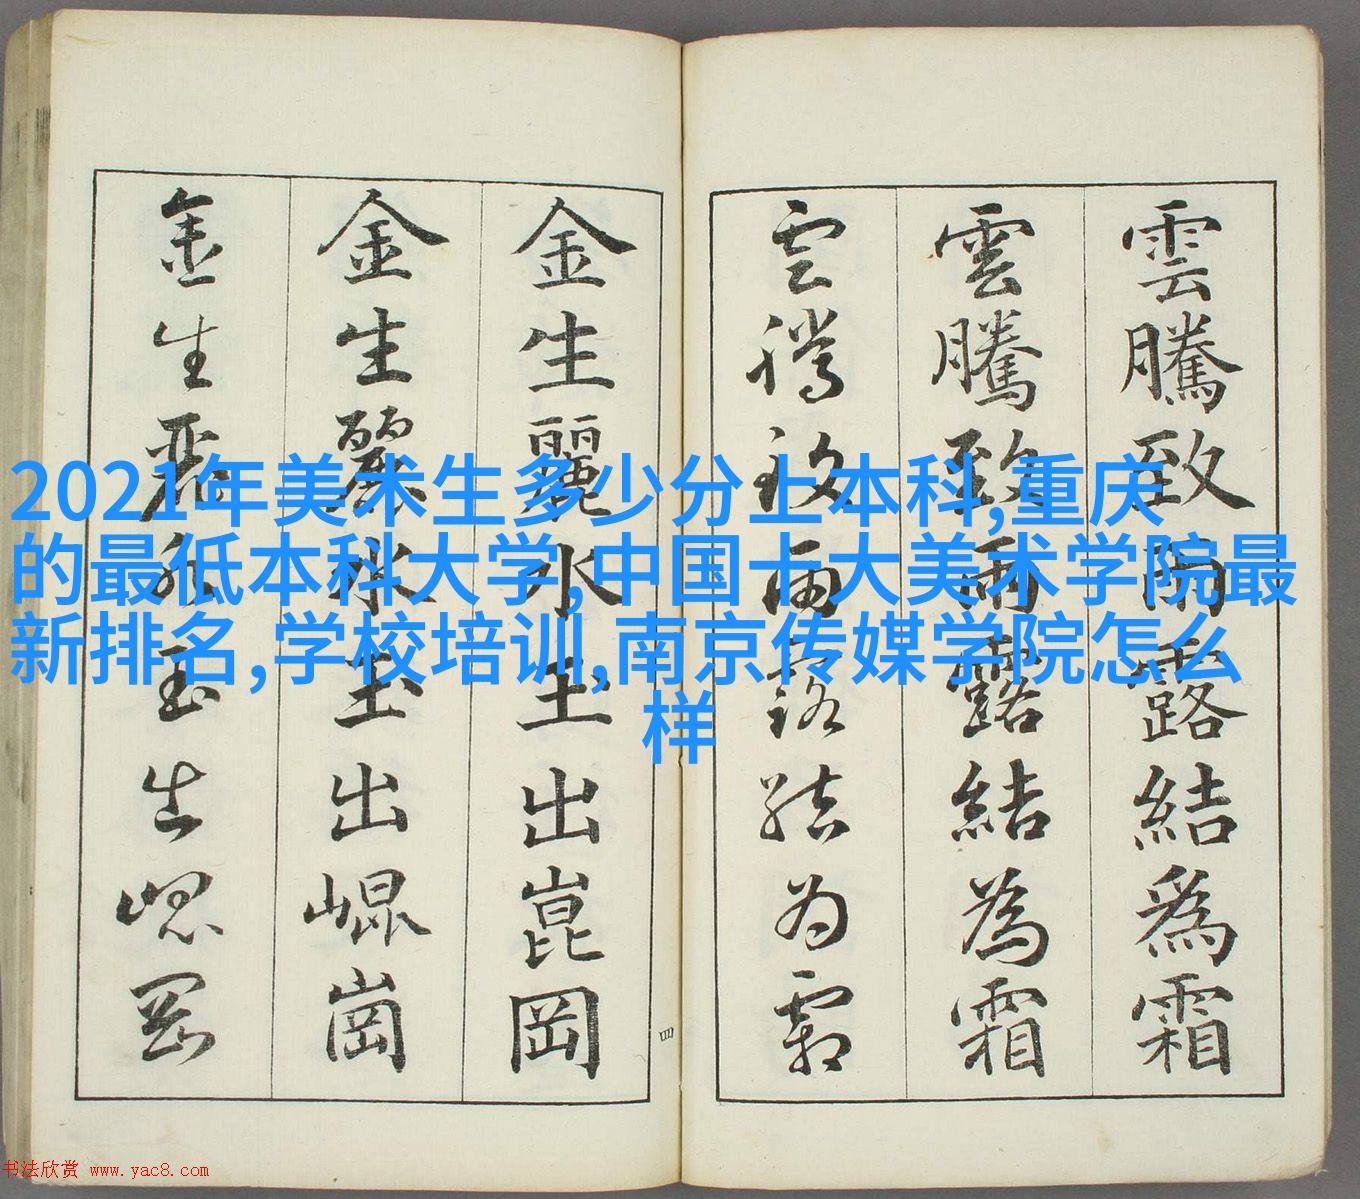 雲騰致雨露結爲霜
雲騰致雨露結為霜
雲騰致雨露結为霜
金生麗水玉出崑岡
金生麗水玉出崐崗
金生麗水玉出崐岡
四
2021年美术生多少分上本科,重庆
的最低本科大学,中国十大美术学院最
新排名,学校培训,南京传媒学院怎么
样
书法欣赏 www.yac8.com